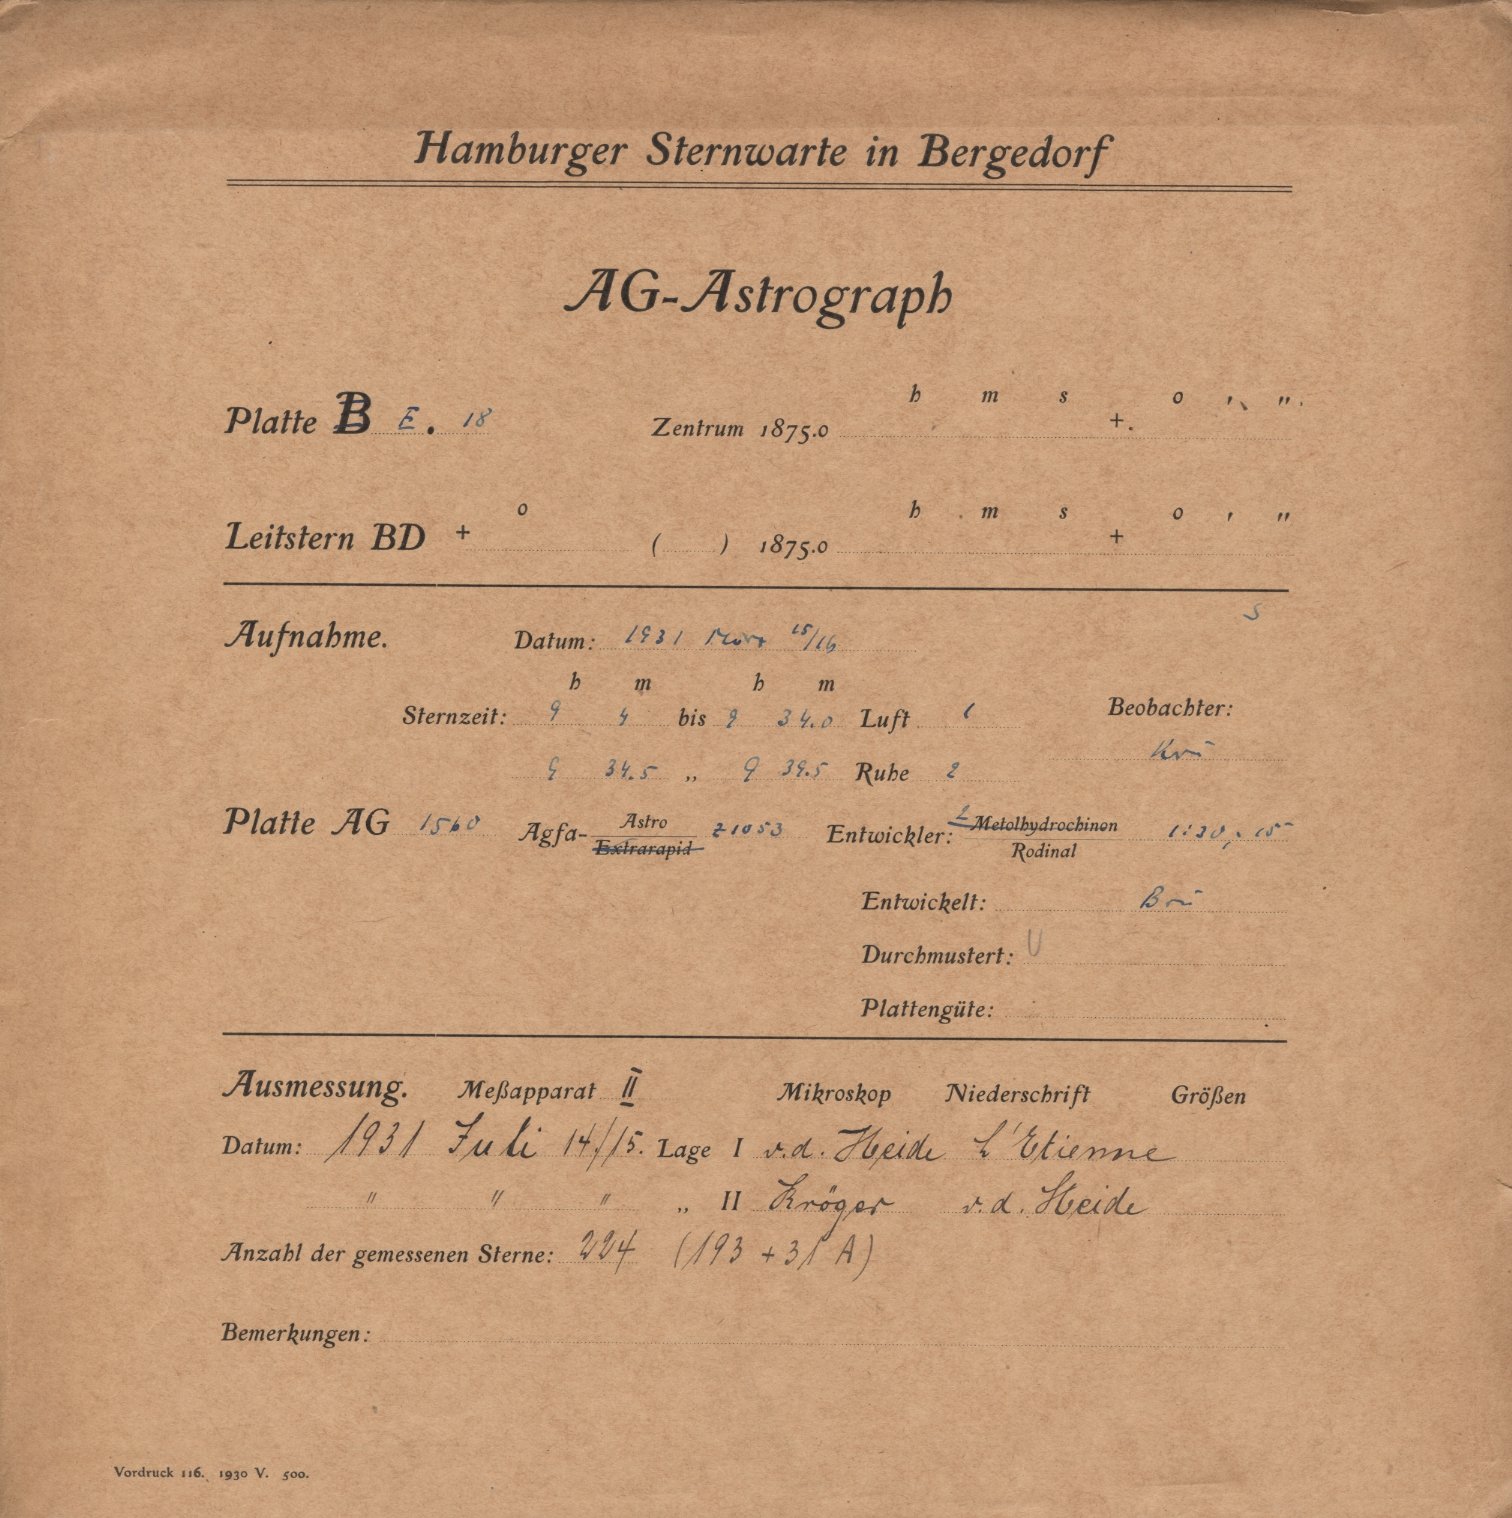 Hamburger Sternwarte in Bergedorf
AG-Astrograph
h m s o ' "
Platte B E. 18 Zentrum 1875.0 +
o h m s o ' "
Leitstern BD + ( ) 1875.0 +
S
Aufnahme. Datum: 1931 März 15/16
h m h m
Sternzeit: 9 4 bis 9 34.0 Luft 1 Beobachter:
9 34.5 „ 9 39.5 Ruhe 2 Krü
Platte AG 1560 Agfa- Astro Extrarapid Z1053 Entwickler: Metolhydrochinon Rodinal 1:20; 15
Entwickelt: Brü
Durchmustert: U
Plattengüte:
Ausmessung. Meßapparat II Mikroskop Niederschrift Größen
Datum: 1931 Juli 14./15. Lage I v.d. Heide L'Etienne
" " " „ II Kröger v.d. Heide
Anzahl der gemessenen Sterne: 224 (193 + 31 A)
Bemerkungen:
Vordruck 116. 1930 V. 500.